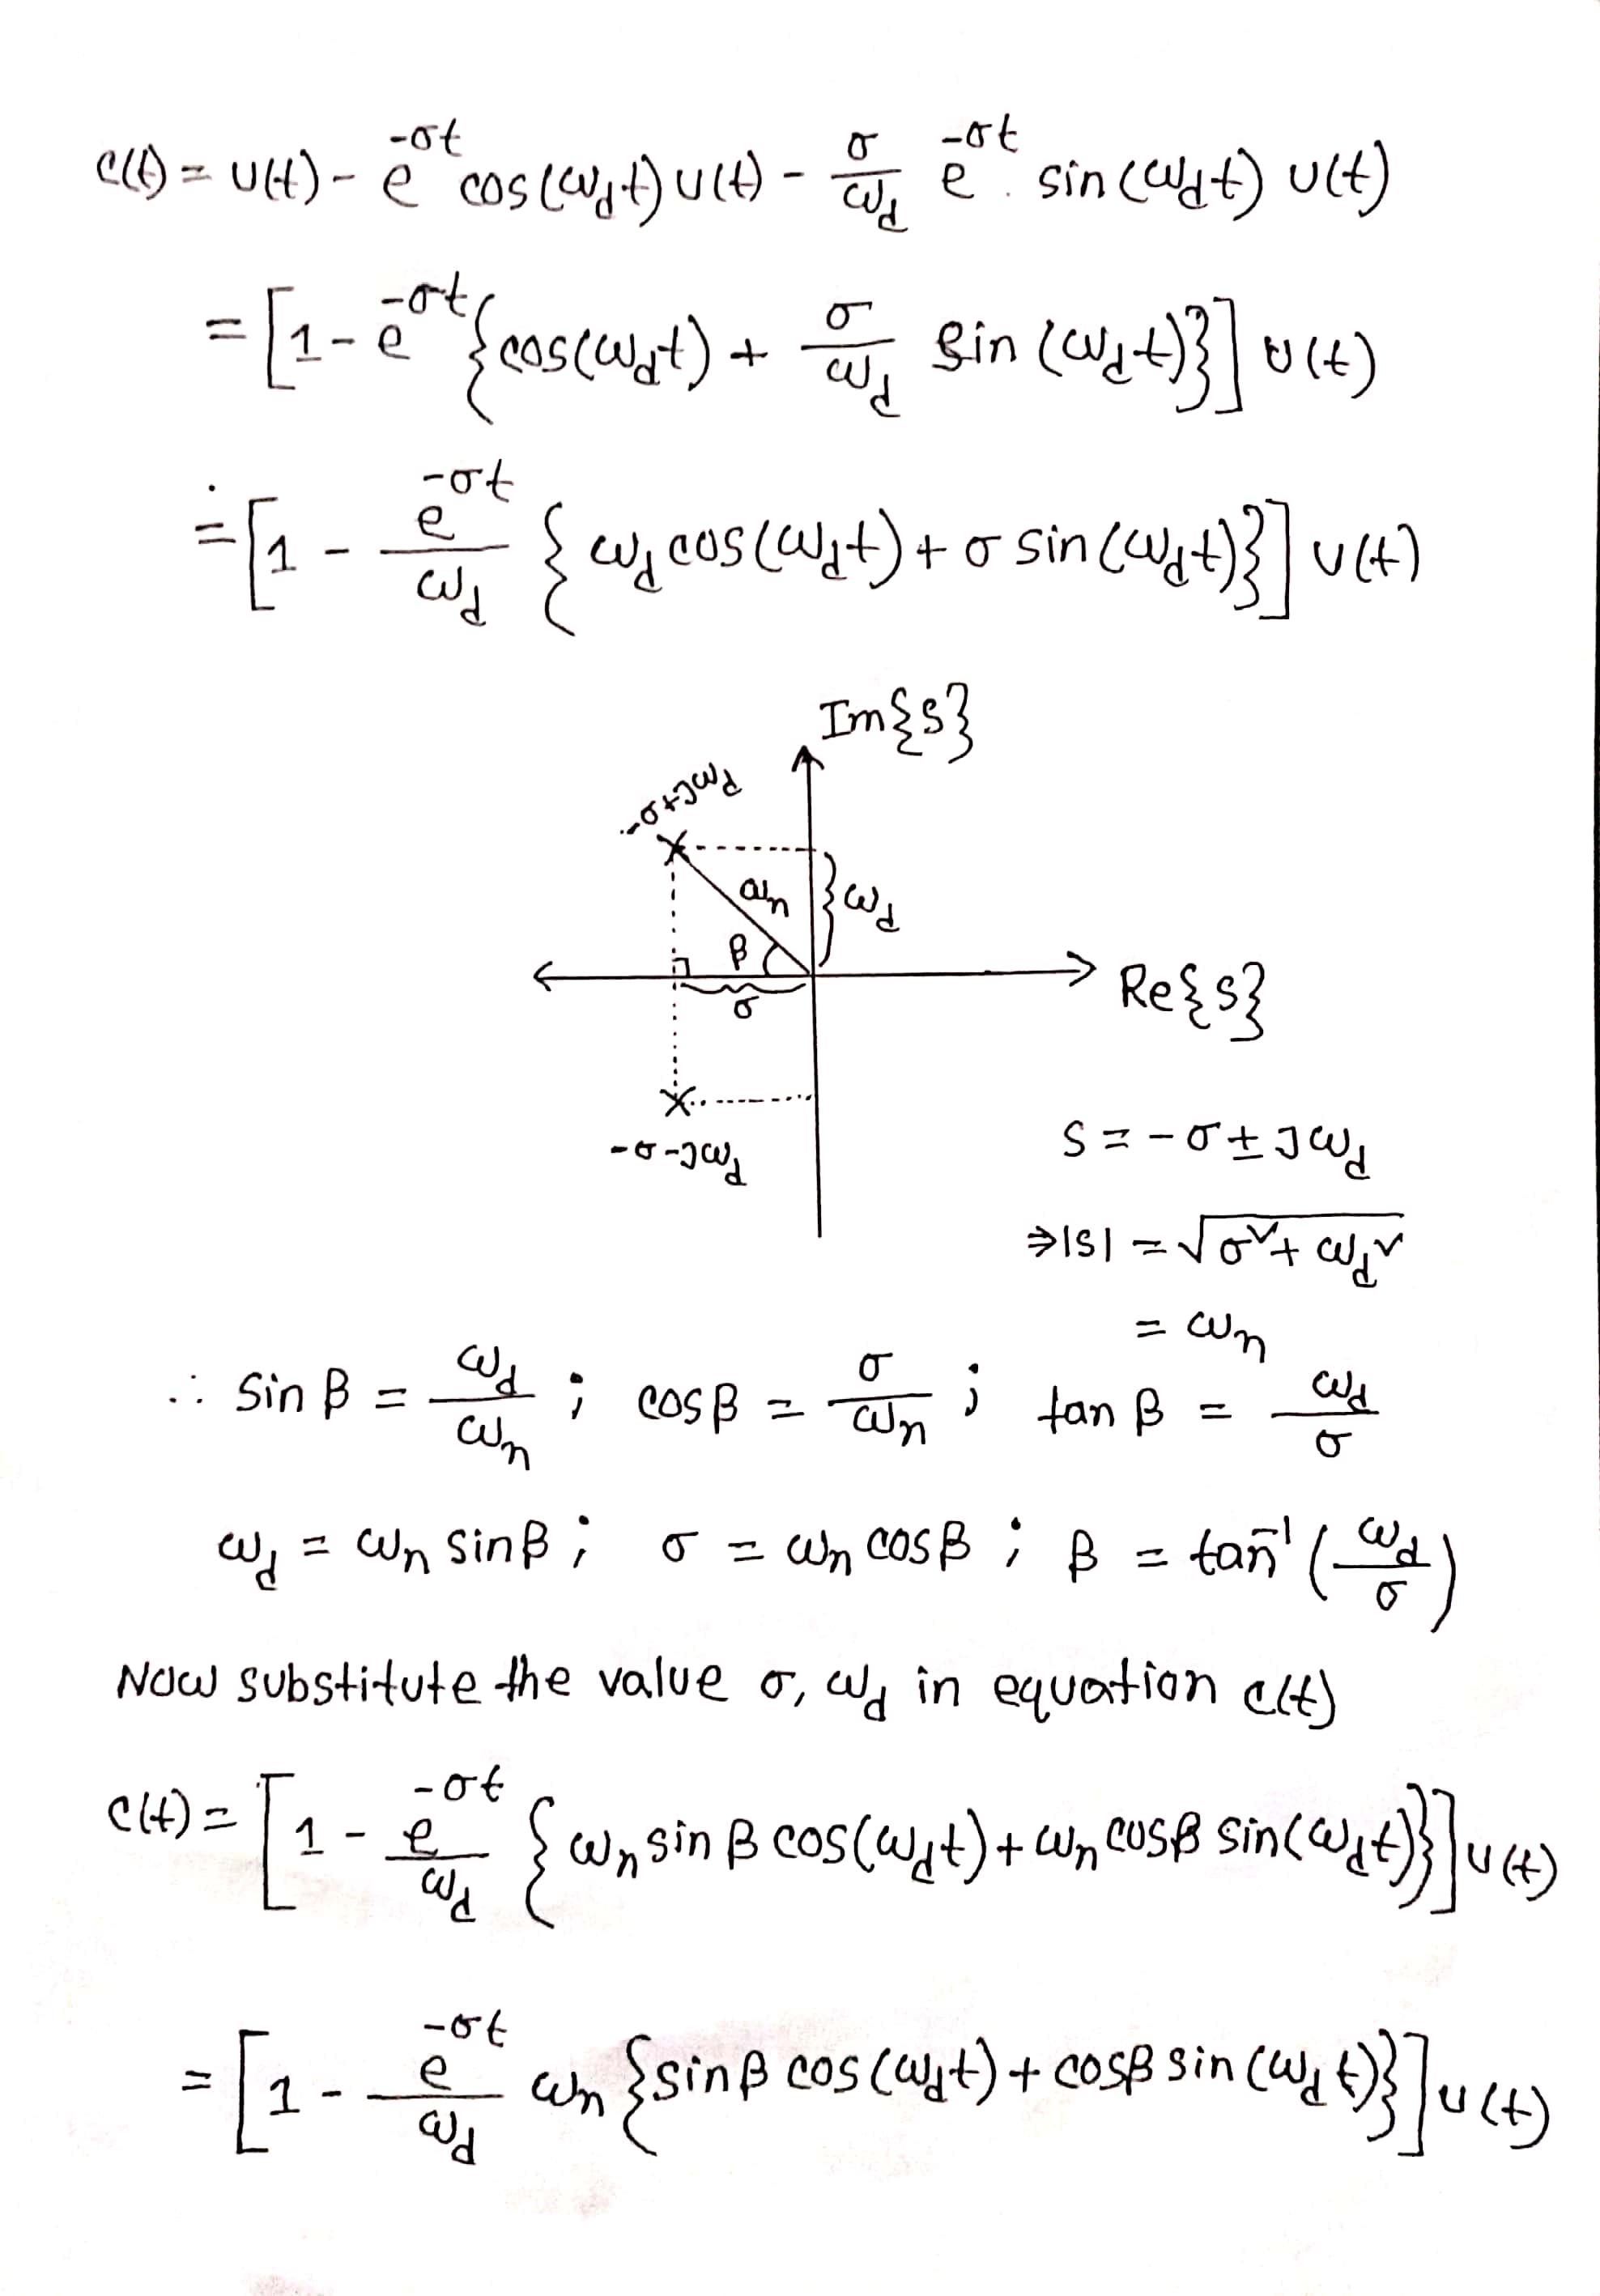 c(t) = u(t) - e^{-σt} cos(ω_d t) u(t) - σ/ω_d e^{-σt}. sin(ω_d t) u(t)
= [1 - e^{-σt} {cos(ω_d t) + σ/ω_d sin(ω_d t)}] u(t)
= [1 - e^{-σt}/ω_d {ω_d cos(ω_d t) + σ sin(ω_d t)}] u(t)
Im{s}
-σ+jω_d
ω_n
ω_d
β
σ
Re{s}
-σ-jω_d
s = -σ ± jω_d
⇒|s| = √(σ² + ω_d²)
= ω_n
∴ sin β = ω_d/ω_n ; cos β = σ/ω_n ; tan β = ω_d/σ
ω_d = ω_n sin β ; σ = ω_n cos β ; β = tan^{-1} (ω_d/σ)
Now substitute the value σ, ω_d in equation c(t)
c(t) = [1 - e^{-σt}/ω_d {ω_n sin β cos(ω_d t) + ω_n cos β sin(ω_d t)}] u(t)
= [1 - e^{-σt}/ω_d ω_n {sin β cos(ω_d t) + cos β sin(ω_d t)}] u(t)